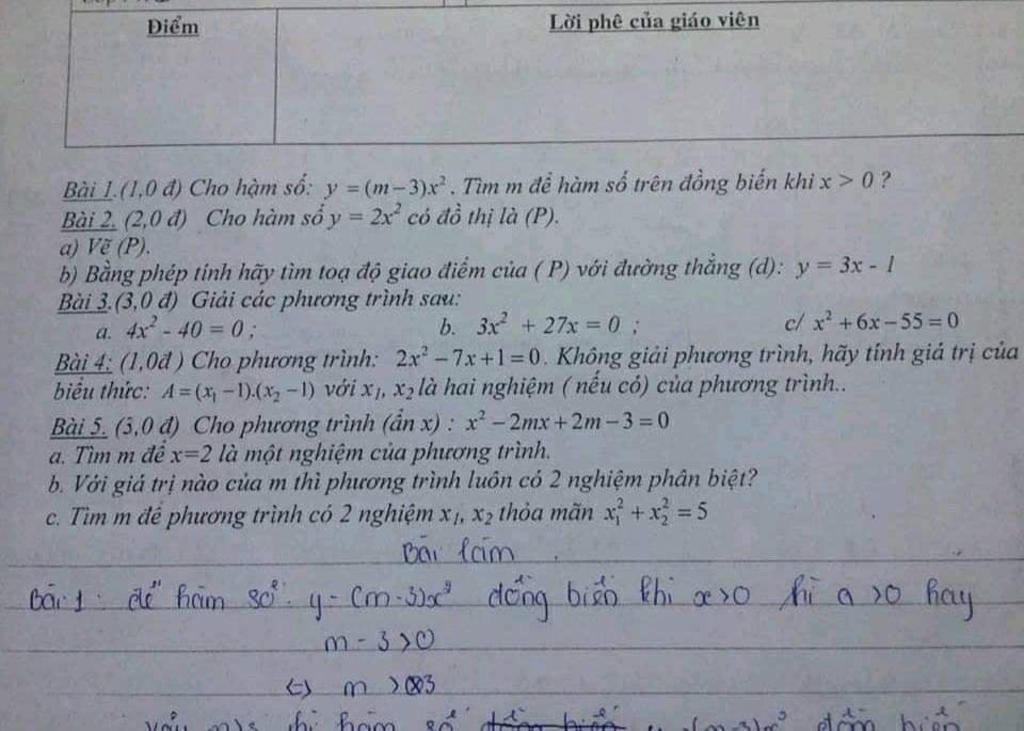 Điểm
Lời phê của giáo viên
Bài 1.(1,0 đ) Cho hàm số: y = (m−3)x². Tìm m để hàm số trên đồng biến khi x > 0 ?
Bài 2. (2,0 đ) Cho hàm số y = 2x² có đồ thị là (P).
a) Vẽ (P).
b) Bằng phép tính hãy tìm toạ độ giao điểm của ( P) với đường thẳng (d): y = 3x - 1
Bài 3.(3,0 đ) Giải các phương trình sau:
a. 4x² - 40 = 0 ; b. 3x² + 27x = 0 ; c/ x² + 6x − 55 = 0
Bài 4: (1,0đ ) Cho phương trình: 2x² − 7x + 1 = 0. Không giải phương trình, hãy tính giá trị của
biểu thức: A = (x₁ −1).(x₂ −1) với x₁, x₂ là hai nghiệm ( nếu có) của phương trình..
Bài 5. (3,0 đ) Cho phương trình (ẩn x) : x² − 2mx + 2m − 3 = 0
a. Tìm m để x=2 là một nghiệm của phương trình.
b. Với giá trị nào của m thì phương trình luôn có 2 nghiệm phân biệt?
c. Tìm m để phương trình có 2 nghiệm x₁, x₂ thỏa mãn x₁² + x₂² = 5
Bài làm
Bài 1: để hàm số: y = (m-3)x² đồng biến khi x>0 thì a >0 hay
m - 3 >0
<=> m > 3
thì hàm số y = (m-3)x² đồng biến